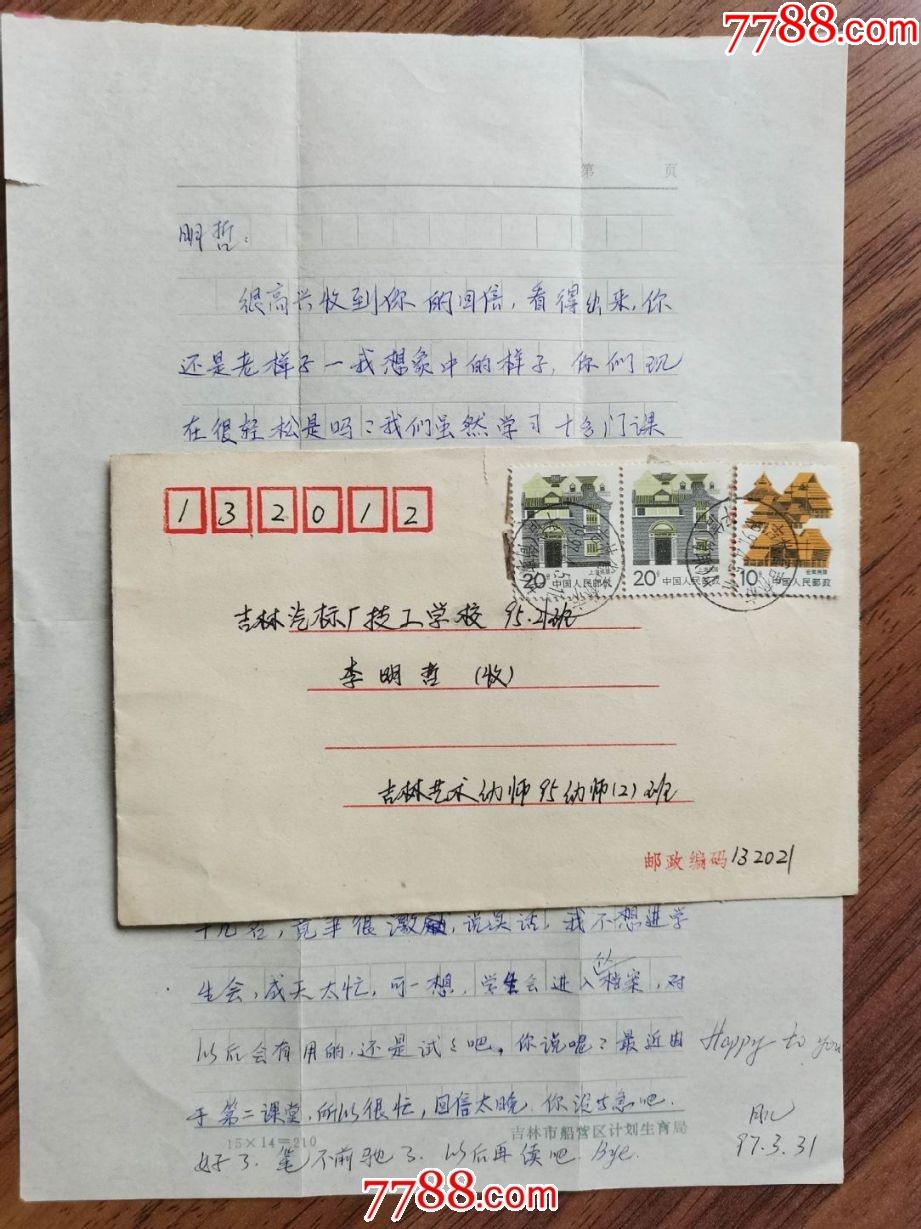 7788.com
第 页
明哲:
很高兴收到你的回信,看得出来,你
还是老样子一我想象中的样子,你们现
在很轻松是吗?我们虽然学习十多门课
132012
20分 中国人民邮政
20分 中国人民邮政
10分 中国人民邮政
吉林汽标厂技工学校 95.2班
李明哲 (收)
吉林艺术幼师95幼师(2)班
邮政编码132021
十几名,竞争很激励,说实话,我不想进学
生会,成天太忙,可一想,学生会进入档案,对
以后会有用的,还是试试吧,你说呢?最近由
Happy to you
于第二课堂,所以很忙,回信太晚,你没生急吧.
15×14=210
吉林市船营区计划生育局
好了,笔不前驰了,以后再续吧.Bye.
97.3.31
7788.com